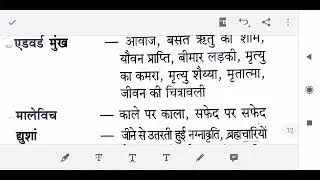 एडवर्ड मुंख — आवाज, बसंत ऋतु की शाम,
यौवन प्राप्ति, बीमार लड़की, मृत्यु
का कमरा, मृत्यु शैय्या, मृतात्मा,
जीवन की चित्रावली
मालेविच — काले पर काला, सफेद पर सफेद
द्युशां — जीने से उतरती हुई नग्नाकृति, ब्रह्मचारियों
12